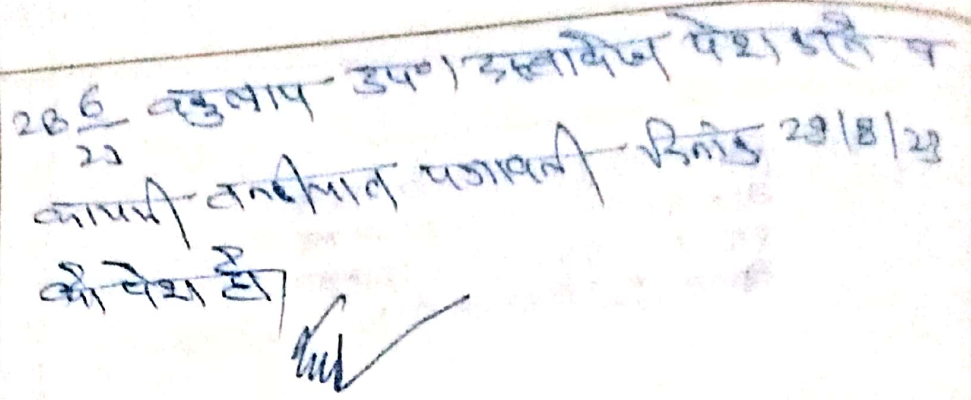 28 6/23 वकुलाय उप०। दस्तावेज पेश करने व
वापसी तनकीयात पत्रावली दिनांक 29/8/23
को पेश हो।